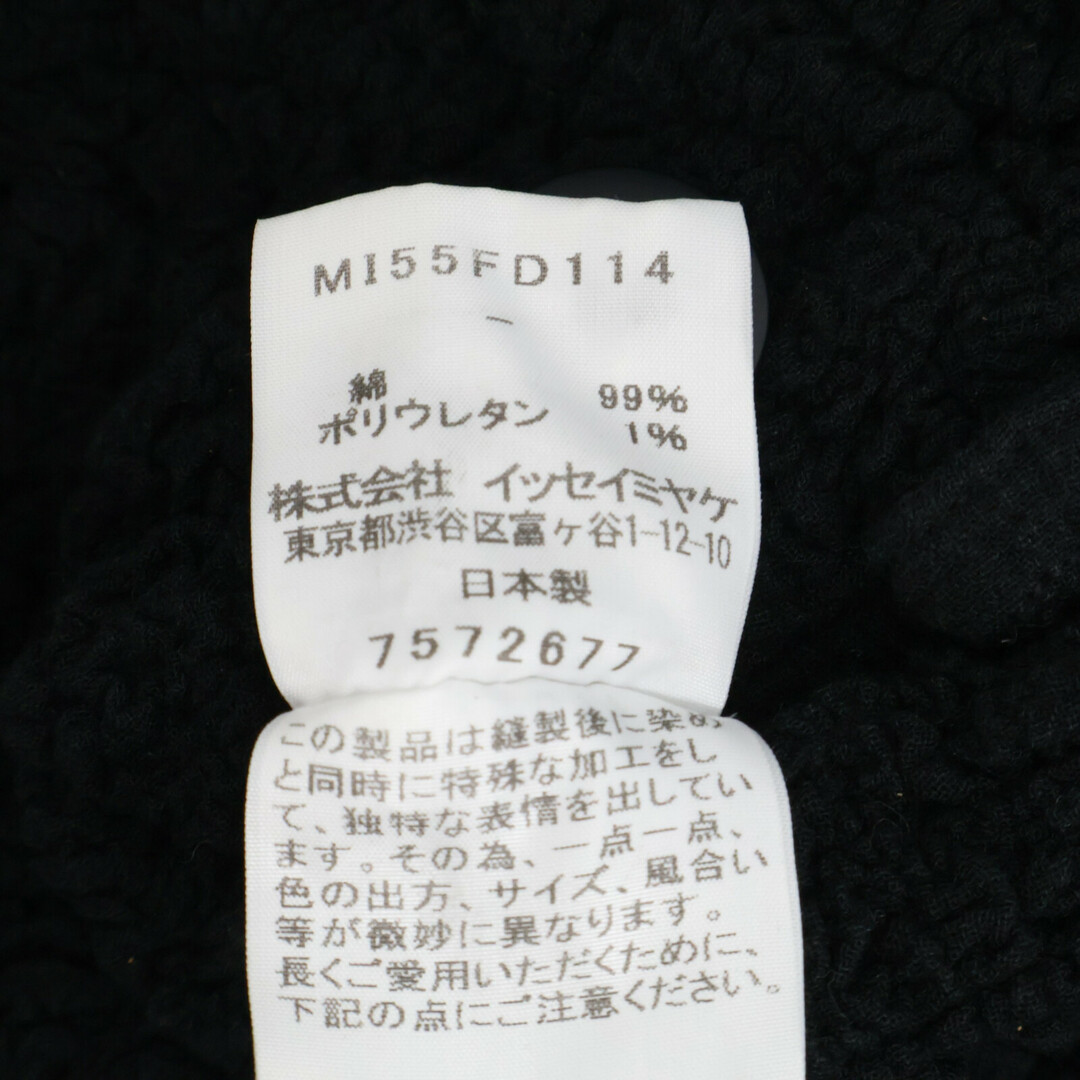 MI55FD114
-
綿 99%
ポリウレタン 1%
株式会社 イッセイミヤケ
東京都渋谷区富ヶ谷1-12-10
日本製
7572677
この製品は縫製後に染め
と同時に特殊な加工をし
て、独特な表情を出してい
ます。その為、一点一点、
色の出方、サイズ、風合い
等が微妙に異なります。
長くご愛用いただくために、
下記の点にご注意ください。